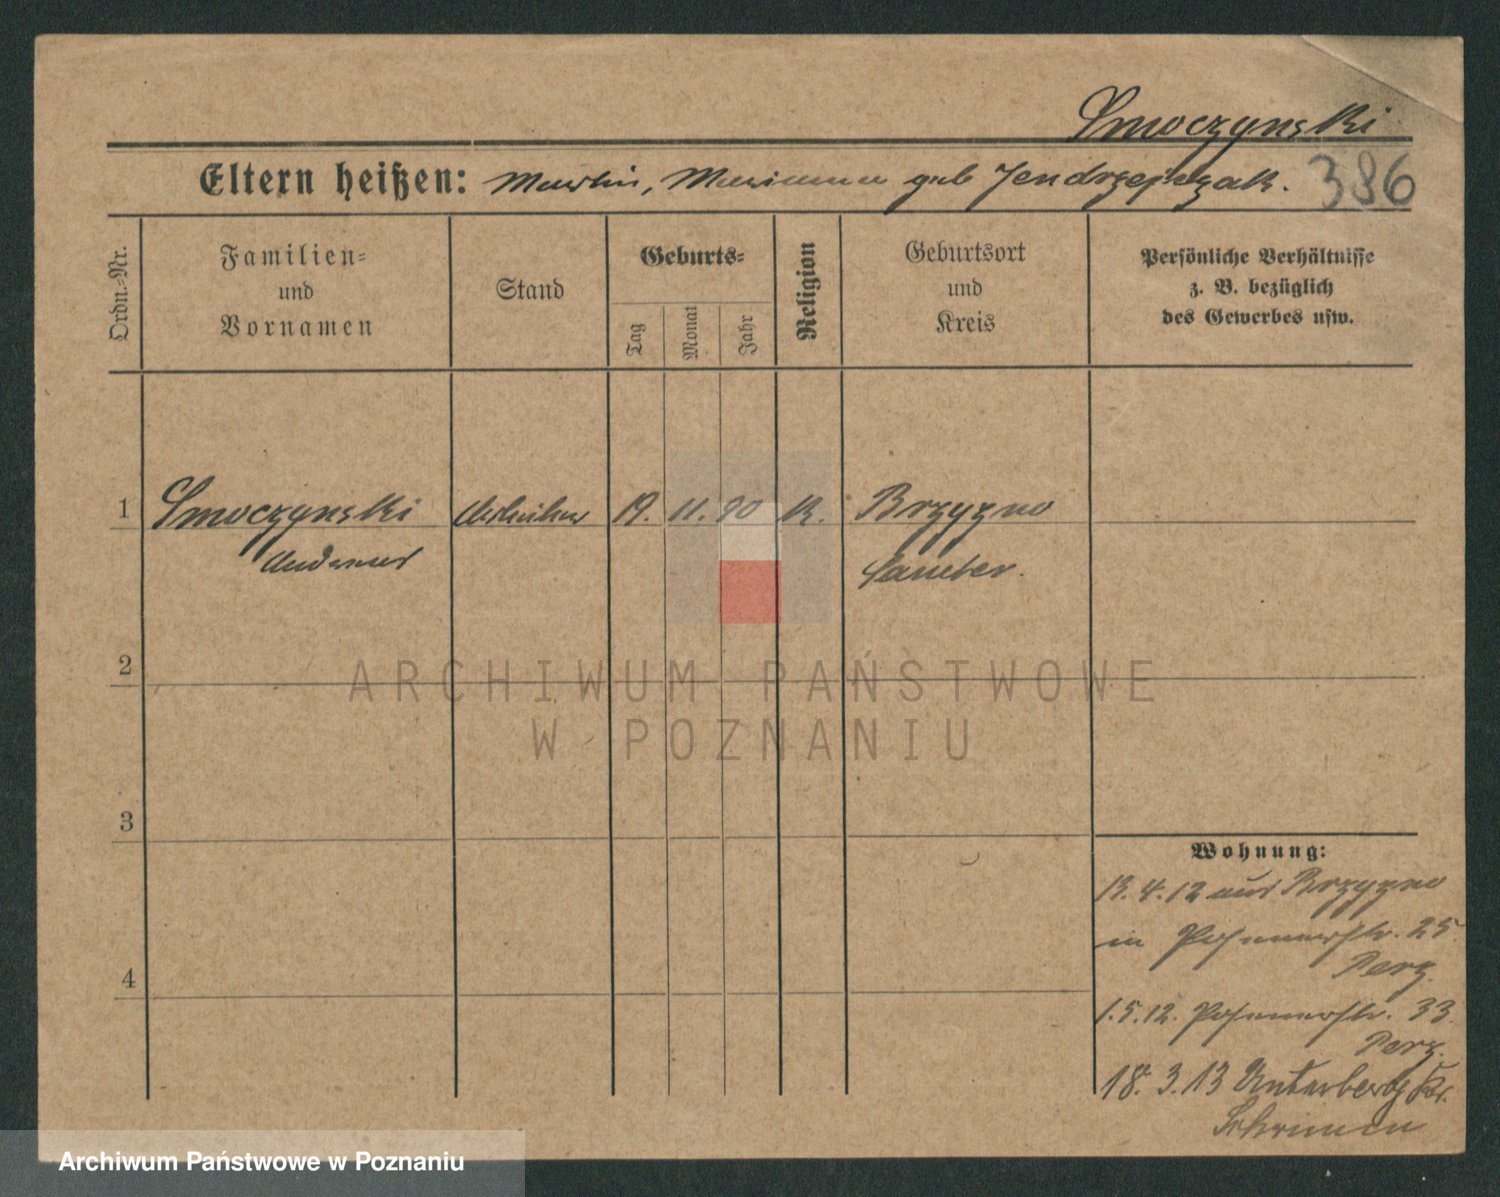 Smoczynski
Eltern heißen: Martin, Marianna geb Jendrzejczak. 386
Ordn.-Nr.
Familien-
und
Vornamen
Stand
Geburts-
Tag
Monat
Jahr
Religion
Geburtsort
und
Kreis
Persönliche Verhältnisse
z. B. bezüglich
des Gewerbes usw.
1 Smoczynski Arbeiter 19. 11. 90 K. Brzyzno
Andreas Samter.
2
3
4
Wohnung:
4.12 aus Brzyzno
in Posenerstr. 25
1.5.12. Posenerstr. 33.
18. 3. 13 Unterberg Kr.
Schrimm
ARCHIWUM PAŃSTWOWE
W POZNANIU
Archiwum Państwowe w Poznaniu